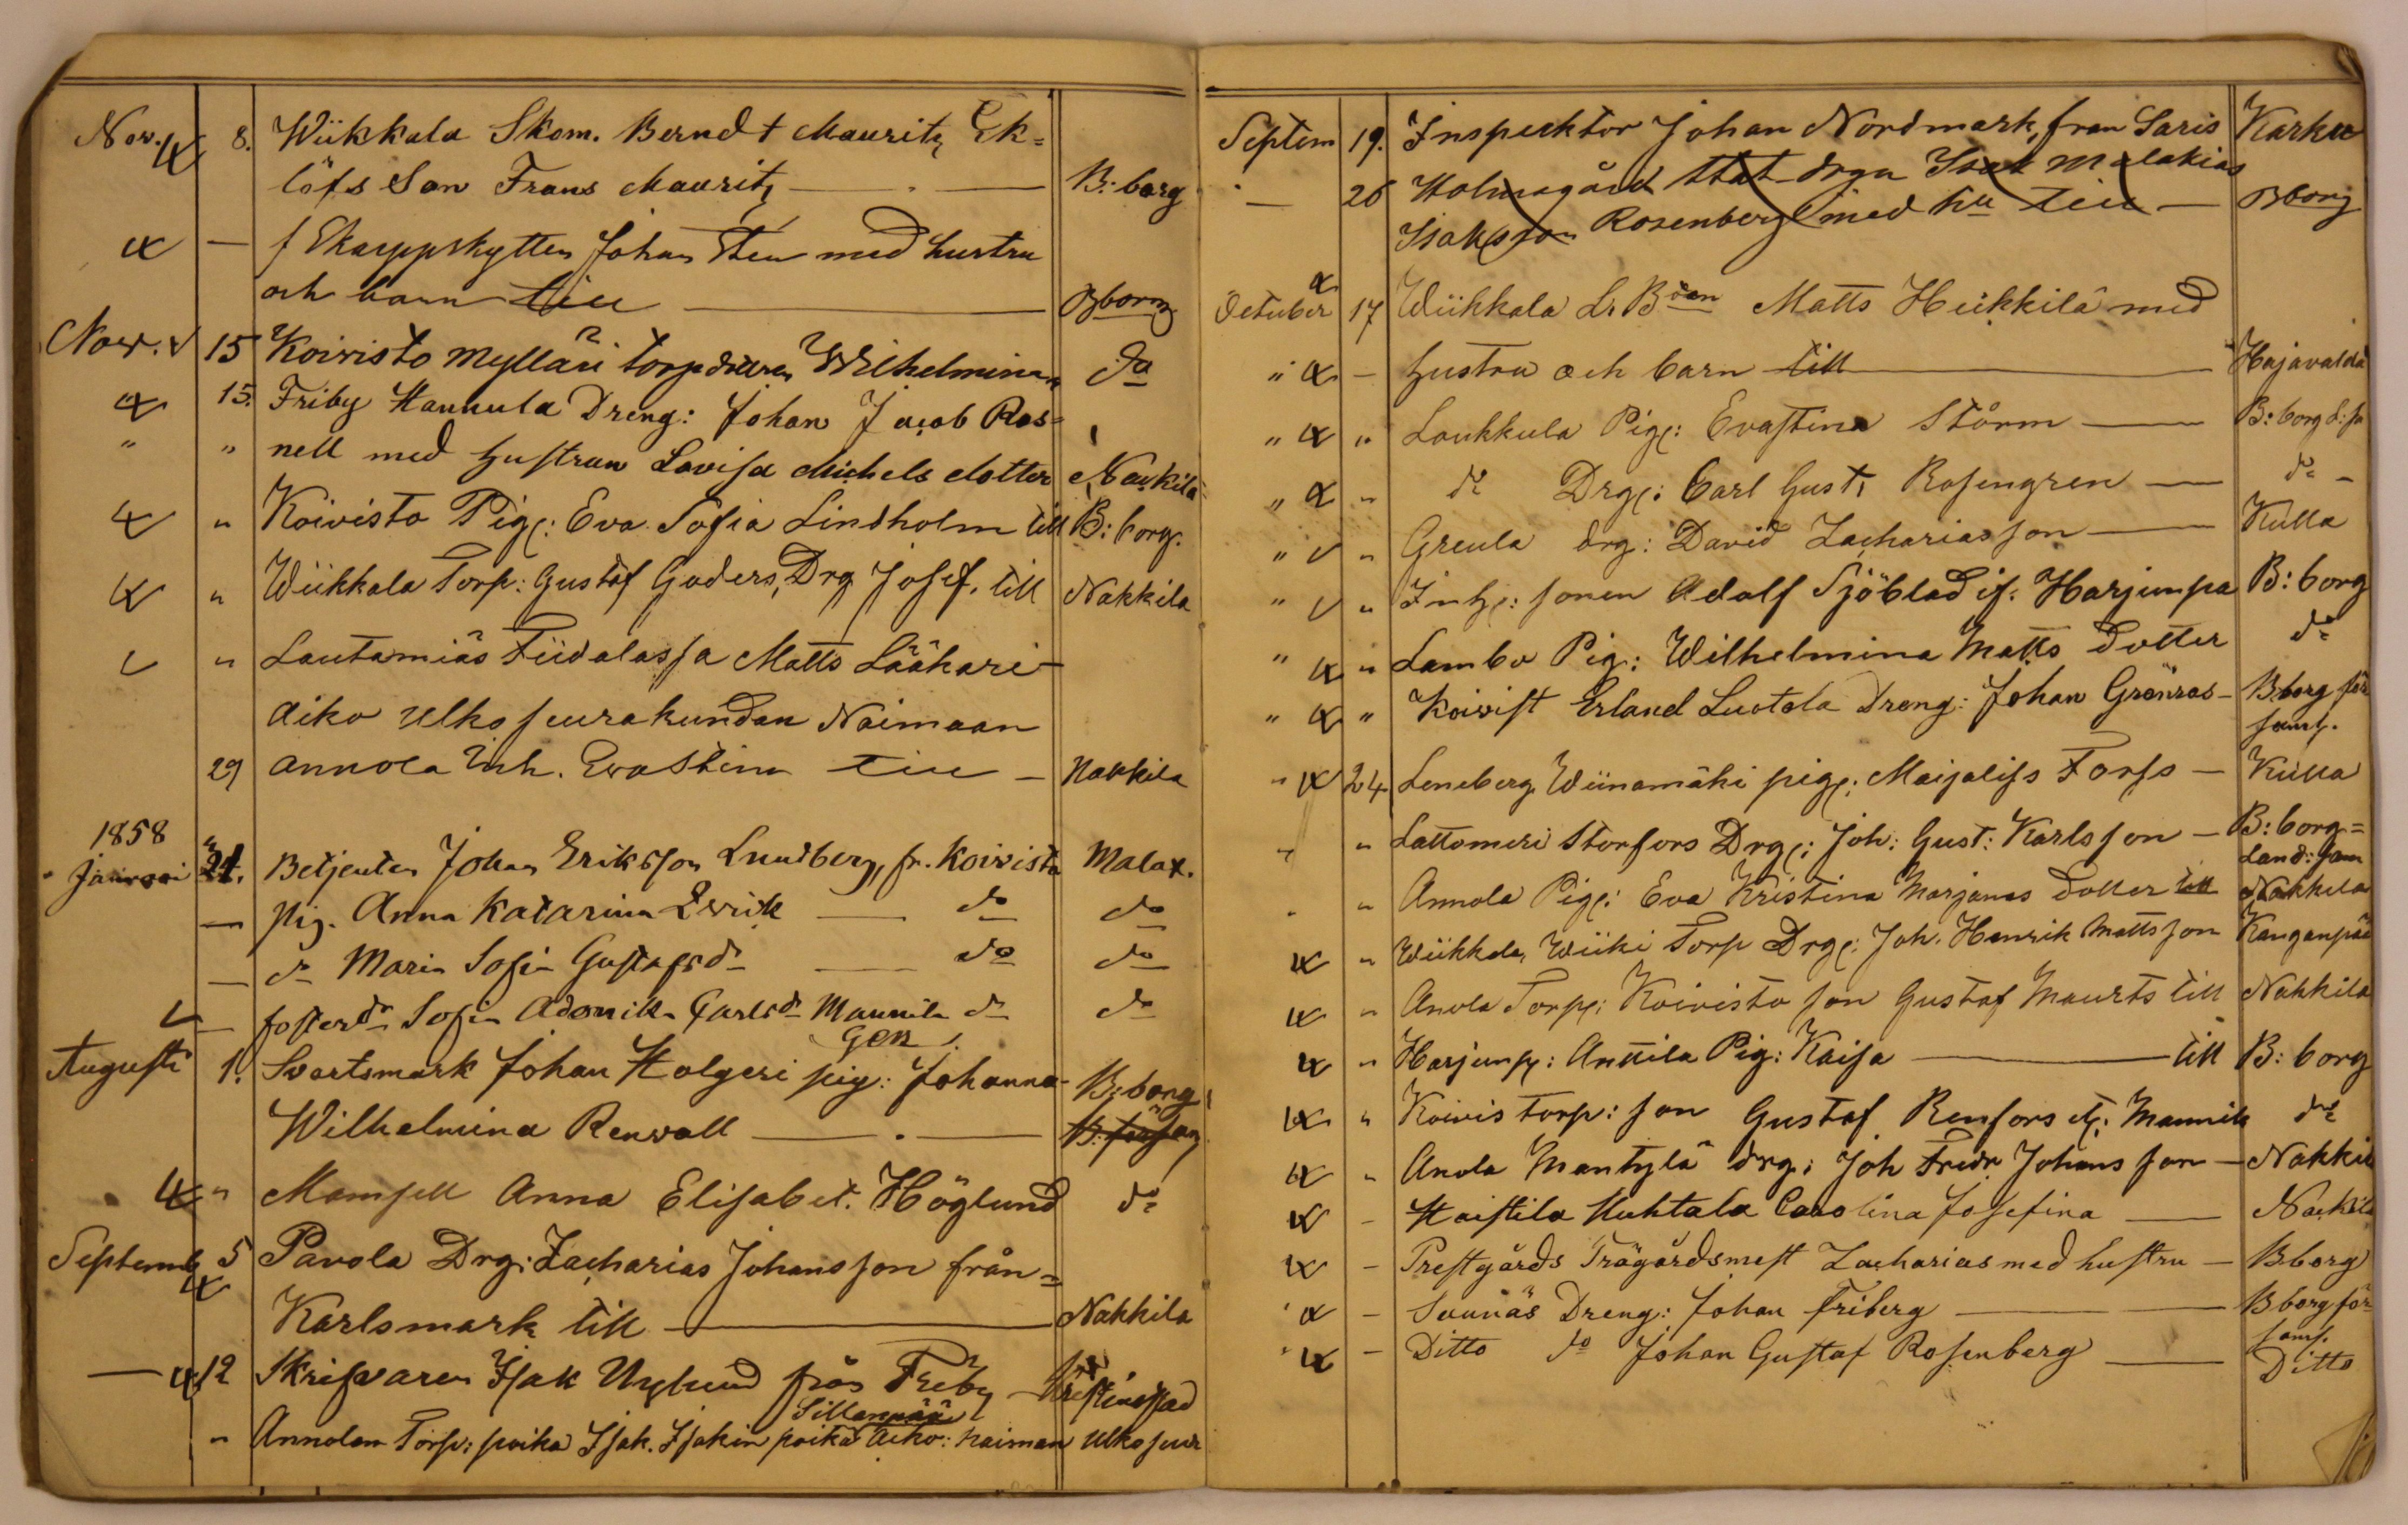 Nov. 8. Wiikkala Skom. Berndt Mauritz Ek=
löfs Son Frans Mauritz — . — B:borg
— f Skarppskytten Johan Sten med hustru
och barn till — Bborg
Nov. 15 Koivisto Mylläri torpdräng Wilhelminan do
15. Friby Hannula Dreng: Johan Jacob Ros=
" " nell med hustrun Lovisa Michels dotter Nackila
" Koivisto Pig: Eva Sofia Lindholm till B:borg.
" Wiikkala Torp: Gustaf Goders, Drg Josef, till Nakkila
" Lautamiäs Fiidalassa Matts Lääkäri
Aiko Ulkoseurakundan Naimaan
29 Annola Inh. Evastina till — Nakkila
1858
Januari 24. Betjenten Johan Eriksson Lundberg, fr. Koivisto Malax.
— Pig. Anna Katarina Evrik — do do
— do Maria Sofia Gustafsdr — do do
— fosterdr Sofia Adamika Carlsdr Mannila do do
Gen
Augusti 1. Svartsmark Johan Holgeri pig: Johanna B:borg
Wilhelmina Renvall — . —
" Mamsell Anna Elisabet. Höglund do
Septemb 5 Pavola Drg: Zacharias Johansson från=
Karlsmark till — Nakkila
— 12 Skrifvaren Isak Nylund från Friby — Kristinestad
Sillanpää
" Annolan Torp: poika Isak. Isakin poika Aiko: naiman Ulkoseur
Septem 19. Inspecktor Johan Nordmark, fran Saris Karku
— 26 Holmagård Stat drgn Isak Malakias
Isaksson Rosenberg med hu till — Bborg
October 17 Wiikkala Lr. Bdan Matts Heikkilä med
" - hustru och barn till — Hajavalda
" " Loukkula Pig: Evastina Storm — B:borg d: fs
" " do Drg: Carl Gust, Rosengren — do -
" " Greula drg: David Zachariasson — Kulla
" " Inh: sonen Adolf Sjöblad if. Harjunpa B:borg
" " Lambo Pig: Wilhelmina Matts Dotter do
" " Koivist Erland Luotola Dreng: Johan Grönros — Bborg för
saml.
" 24 Leneberg Wiinamäki pig: Maijaliss Forss — Kulla
" " Lattomeri Storfors Drg: Joh: Gust: Karlsson — B:borg=
Land: sam
" Annola Pig: Eva Kristina Marjanas Dotter till Nakkila
" Wiikkala, Wiiki Torp Drg: Joh. Henrik Mattsson Kanganpää
" Anola Torp: Koivisto son Gustaf Maurts till Nakkila
" Harjunp: Anttila Pig: Kaisa — till B:borg
" Koivis torp: son Gustaf Renfors Mannila do
" Anola Mäntylä drg: Joh Fredr Johansson — Nakkil
- Haistila Huhtala Carolina Josefina — Nackila
- Prestgårds Trägårdsmest Zacharias med hustru — Bborg
- Sunnäs Dreng: Johan Friberg — Bborg för
saml.
- Ditto do Johan Gustaf Rosenberg — Ditto